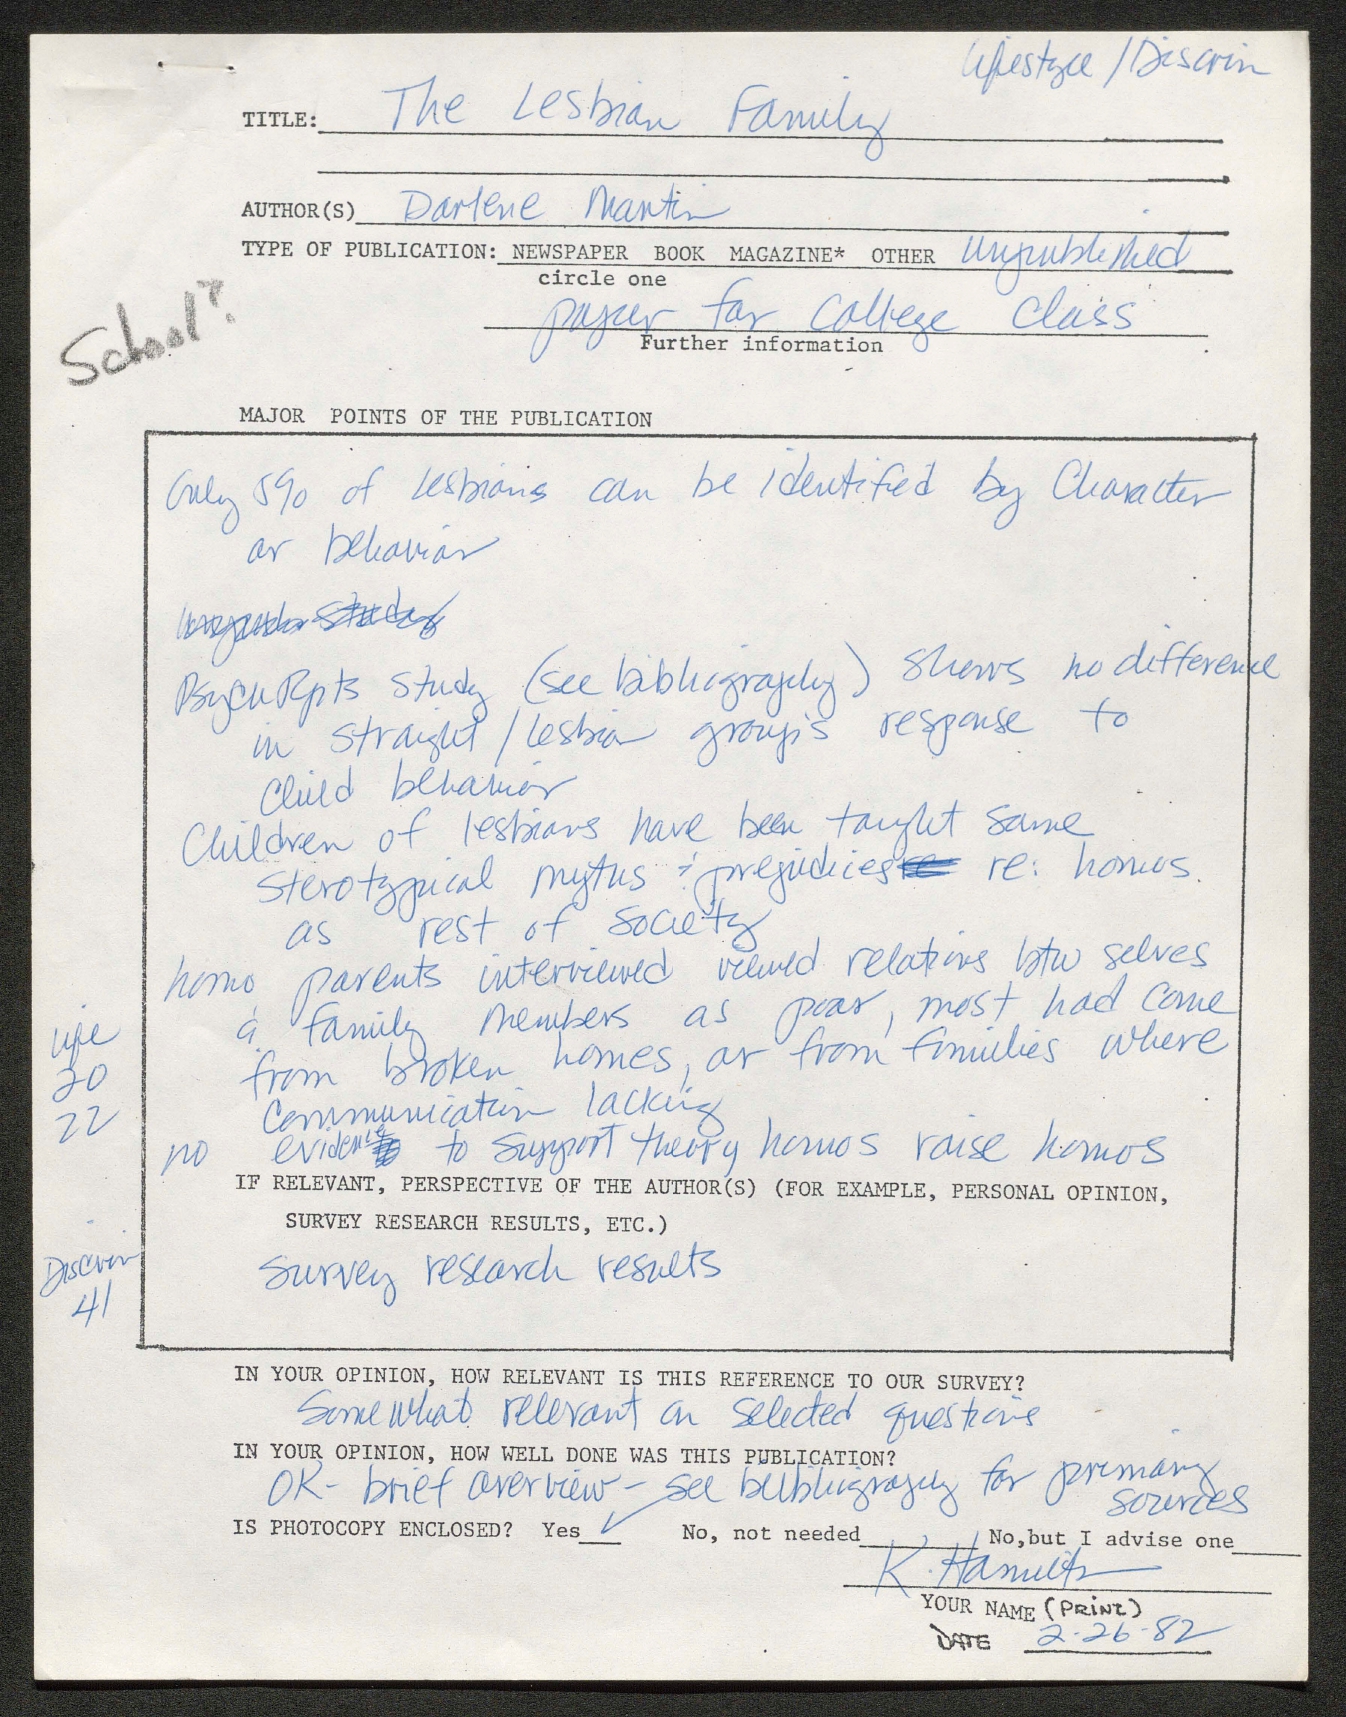 Lifestyle / Discrim
TITLE: The Lesbian Family
AUTHOR(S) Darlene Martin
TYPE OF PUBLICATION: NEWSPAPER BOOK MAGAZINE* OTHER Unpublished
circle one
paper for College Class
Further information
School?
MAJOR POINTS OF THE PUBLICATION
Only 5% of lesbians can be identified by Character
or behavior
Psych Rpts study (see bibliography) shows no difference
in straight / lesbian group's response to
child behavior
Children of lesbians have been taught same
sterotypical myths & prejudices re: homos.
as rest of society
homo parents interviewed viewed relations btw selves
& family members as poor, most had come
from broken homes, or from families where
communication lacking
no evidence to support theory homos raise homos
Life
20
22
IF RELEVANT, PERSPECTIVE OF THE AUTHOR(S) (FOR EXAMPLE, PERSONAL OPINION,
SURVEY RESEARCH RESULTS, ETC.)
Survey research results
Discrim
41
IN YOUR OPINION, HOW RELEVANT IS THIS REFERENCE TO OUR SURVEY?
Somewhat relevant on selected questions
IN YOUR OPINION, HOW WELL DONE WAS THIS PUBLICATION?
OK - brief overview - see bibliography for primary
sources
IS PHOTOCOPY ENCLOSED? Yes ✓ No, not needed No,but I advise one
K. Hamilton
YOUR NAME (PRINT)
DATE 2-26-82